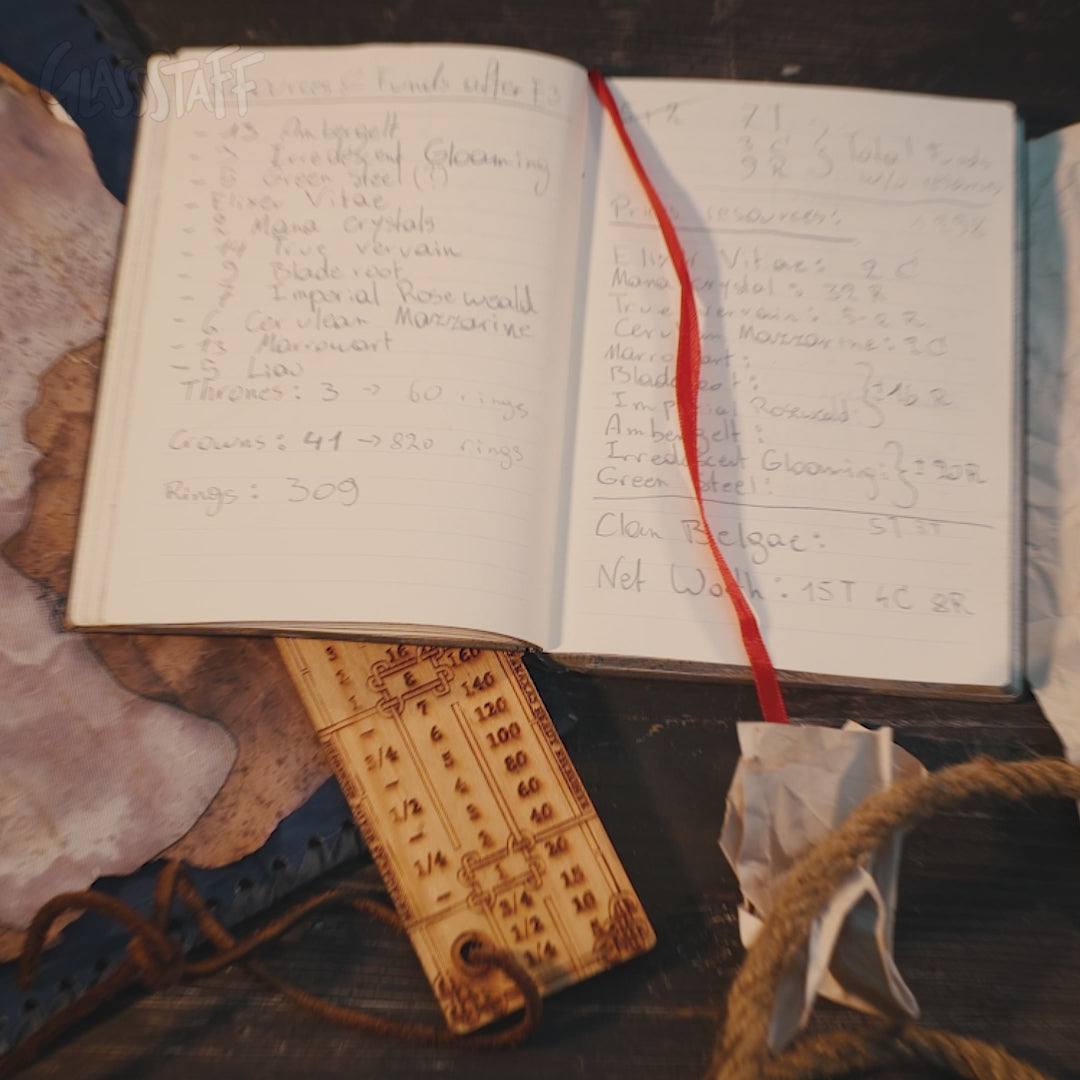 GLASSSTAFF
Funds after E3
- 13 Ambergelt
Irredescent Gloaming
Green steel (?)
- Elixer Vitae
- 2 Mana crystals
- 14 True vervain
- 9 Blade root
Imporial Roseweald
- 6 Cerulean Mazzarine
- 13 Marrowart
- 5 Liao
Thrones: 3 → 60 rings
Crowns: 41 → 820 rings
Rings: 309
7T
3 C
9 R
Total Funds
w/o resources
Prices resources:
Elixer Vitae: 2 C
Mana crystal: 32 R
True vervain:
Cerulean Mazzarine: 2C
Marrowart:
Bladeroot:
± 16 R
Imperial Roseweald:
Ambergelt:
Irredescent Gloaming:
± 20R
Green Steel:
Clan Belgae:
Net Worth: 15T 4C 8R
16 160
8
7 140
6 120
3/4 5 100
80
1/2 60
3 40
1/4 2
1 20
3/4 15
1/2 10
1/4 5